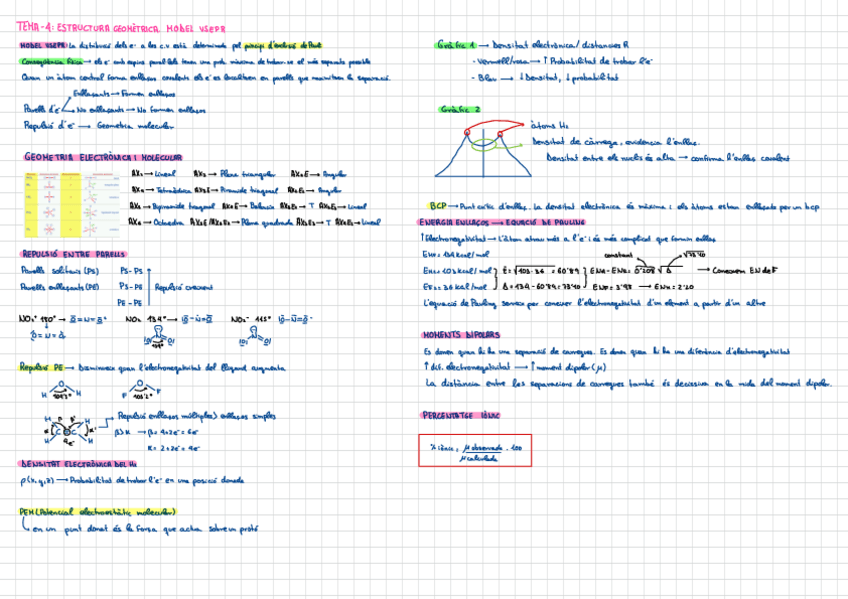 TEMA-4: ESTRUCTURA GEOMÈTRICA. MODEL VSEPR
MODEL VSEPR: La distribució dels e⁻ a la c.v està determinada pel principi d'exclusió de Pauli
Conseqüència física → els e⁻ amb espins paral·lels tenen una prob. màxima de trobar-se el més separats possible
Quan un àtom central forma enllaços covalents els e⁻ es localitzen en parells que maximitzen la separació.
Enllaçants → Formen enllaços
Parells d'e⁻
No enllaçants → No formen enllaços
Repulsió d'e⁻ → Geometria molecular
GEOMETRIA ELECTRÒNICA I MOLECULAR
AX₂ → Lineal AX₃ → Plana triangular AX₂E → Angular
AX₄ → Tetraèdrica AX₃E → Piràmide trigonal AX₂E₂ → Angular
AX₅ → Bipiràmide trigonal AX₄E → Balancín AX₃E₂ → T AX₂E₃ → Lineal
AX₆ → Octaedre AX₄E₂ → Plana quadrada AX₃E₃ → T AX₂E₄ → Lineal
REPULSIÓ ENTRE PARELLS
Parells solitaris (PS) PS-PS
Parells enllaçants (PE) PS-PE Repulsió creixent
PE-PE
NO₂⁺ 180° → NO₂ 134° → NO₂⁻ 115°
Repulsió PE → Disminueix quan l'electronegativitat del lligand augmenta
O
H H
O
F F
Repulsió enllaços múltiples > enllaços simples
β > α → β = 4+2e⁻ = 6e⁻
α = 2+2e⁻ = 4e⁻
DENSITAT ELECTRÒNICA DEL H₂
ρ(x,y,z) → Probabilitat de trobar l'e⁻ en una posició donada
PEM (Potencial electrostàtic molecular)
en un punt donat és la força que actua sobre un protó
Gràfic 1 → Densitat electrònica / distancies R
- Vermell/rosa → ↑ Probabilitat de trobar l'e⁻
- Blau → ↓ densitat, ↓ probabilitat
Gràfic 2
àtoms H₂
Densitat de càrrega, evidencia l'enllaç.
Densitat entre els nuclis és alta → confirma l'enllaç covalent
BCP → Punt crític d'enllaç. La densitat electrònica és màxima i els àtoms estan enllaçats per un bcp
ENERGIA ENLLAÇOS → EQUACIÓ DE PAULING
↑ Electronegativitat → L'àtom atrau més a l'e⁻ i és més complicat que formin enllaç
E_HF = 134 kcal/mol constant √73'10
E_HH = 103 kcal/mol E = √103·36 = 60'89 EN_A - EN_B = 0'208 √Δ → Coneixem EN de F
E_FF = 36 kcal/mol Δ = 134 - 60'89 = 73'10 EN_F = 3'98 → EN_H = 2'20
L'equació de Pauling serveix per conèixer l'electronegativitat d'un element a partir d'un altre
MOMENTS DIPOLARS
Es donen quan hi ha una separació de càrregues. Es donen quan hi ha una diferència d'electronegativitat
↑ dif. electronegativitat → ↑ moment dipolar (μ)
La distància entre les separacions de càrregues també és decissiva en la mida del moment dipolar.
PERCENTATGE IÒNIC
% iònic = μ observada / μ calculada · 100